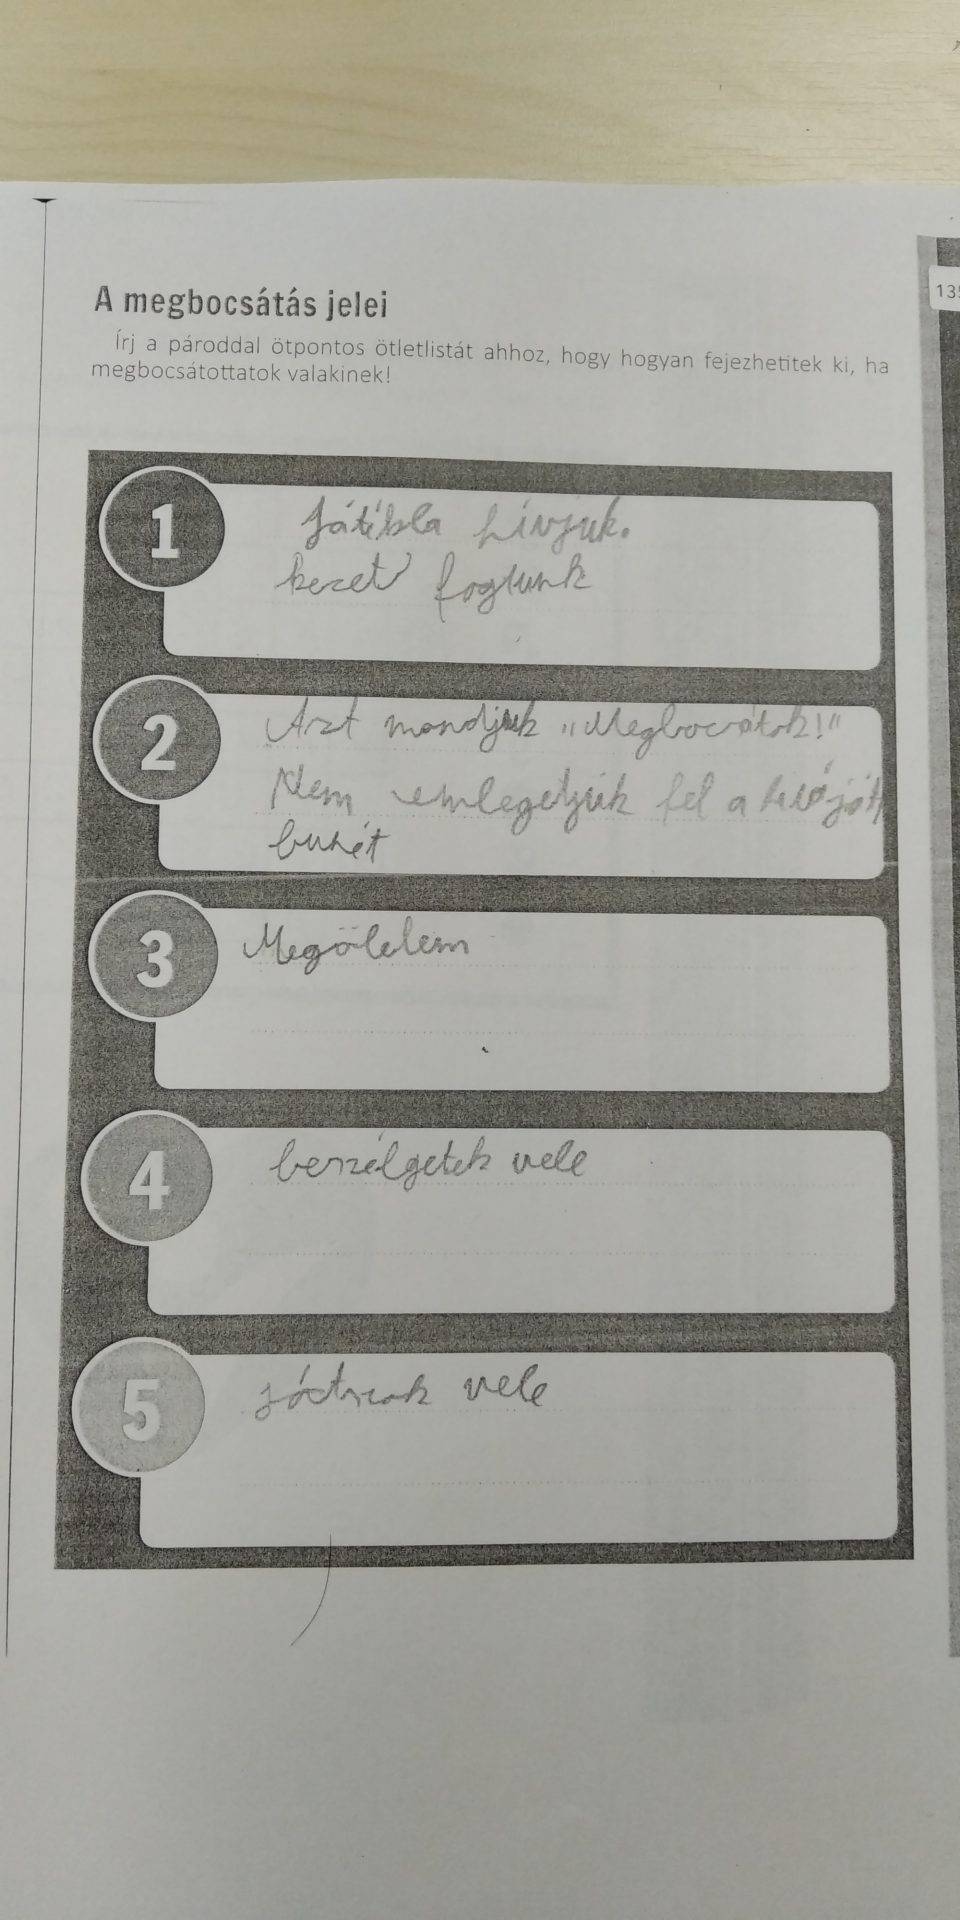 135
A megbocsátás jelei
Írj a pároddal ötpontos ötletlistát ahhoz, hogy hogyan fejezhetitek ki, ha
megbocsátottatok valakinek!
1
Játékba hívjuk.
kezet foglunk
2
Azt mondjuk "Megbocsátok!"
Nem emlegetjük fel a
bűnét
3
Megölelem
4
beszélgetek vele
5
játszok vele